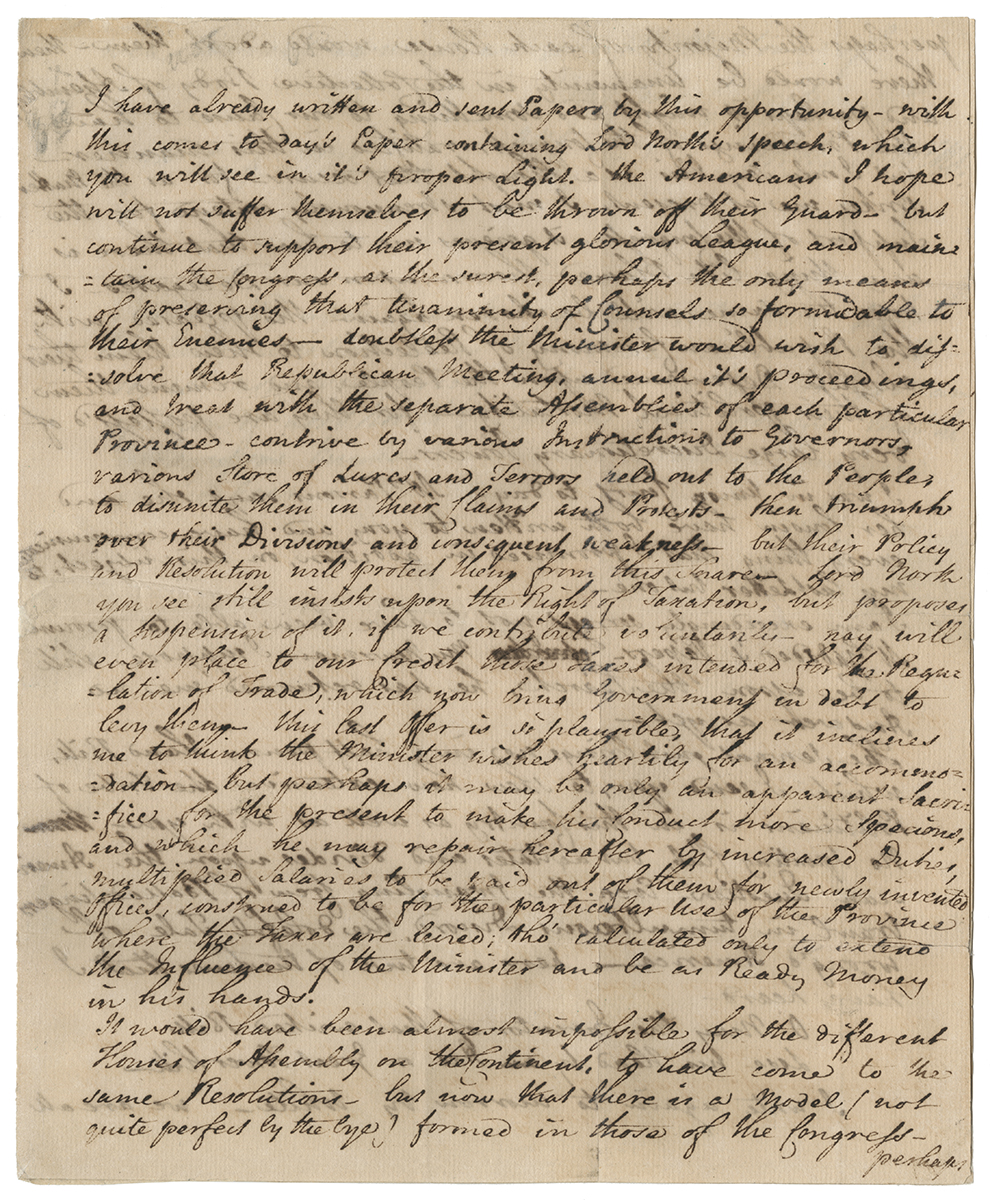 I have already written and sent Papers by this opportunity - with
this comes to day's Paper containing Lord North's Speech, which
you will see in it's proper Light. the Americans I hope
will not suffer themselves to be thrown off their Guard - but
continue to support their present glorious League, and main=
=tain the Congress, as the surest, perhaps the only means
of preserving that Unanimity of Counsels so formidable to
their Enemies — doubtless the Minister would wish to dis=
=solve that Republican Meeting, annul it's proceedings,
and treat with the separate Assemblies of each particular
Province - contrive by various Instructions to Governors,
various Store of Lures and Terrors held out to the People,
to disunite them in their Claims and Protests - then triumph
over their Divisions and consequent weakness - but their Policy
and Resolution will protect them from this Snare - Lord North
you see still insists upon the Right of Taxation, but proposes
a suspension of it, if we contribute voluntarily - nay will
even place to our Credit those Taxes intended for the Regu=
=lation of Trade, which now bring Government in debt to
levy them - this last Offer is so plausible, that it inclines
me to think the Minister wishes heartily for an accommo=
=dation - but perhaps it may be only an apparent Sacri=
=fice for the present to make his Conduct more Specious,
and which he may repair hereafter by increased Duties,
multiplied Salaries to be paid out of them for newly invented
Offices, construed to be for the particular Use of the Province
where the Taxes are levied; tho' calculated only to extend
the Influence of the Minister and be as Ready Money
in his hands.
It would have been almost impossible for the different
Houses of Assembly on the Continent, to have come to the
same Resolutions - but now that there is a Model (not
quite perfect by the bye) formed in those of the Congress -
perhaps